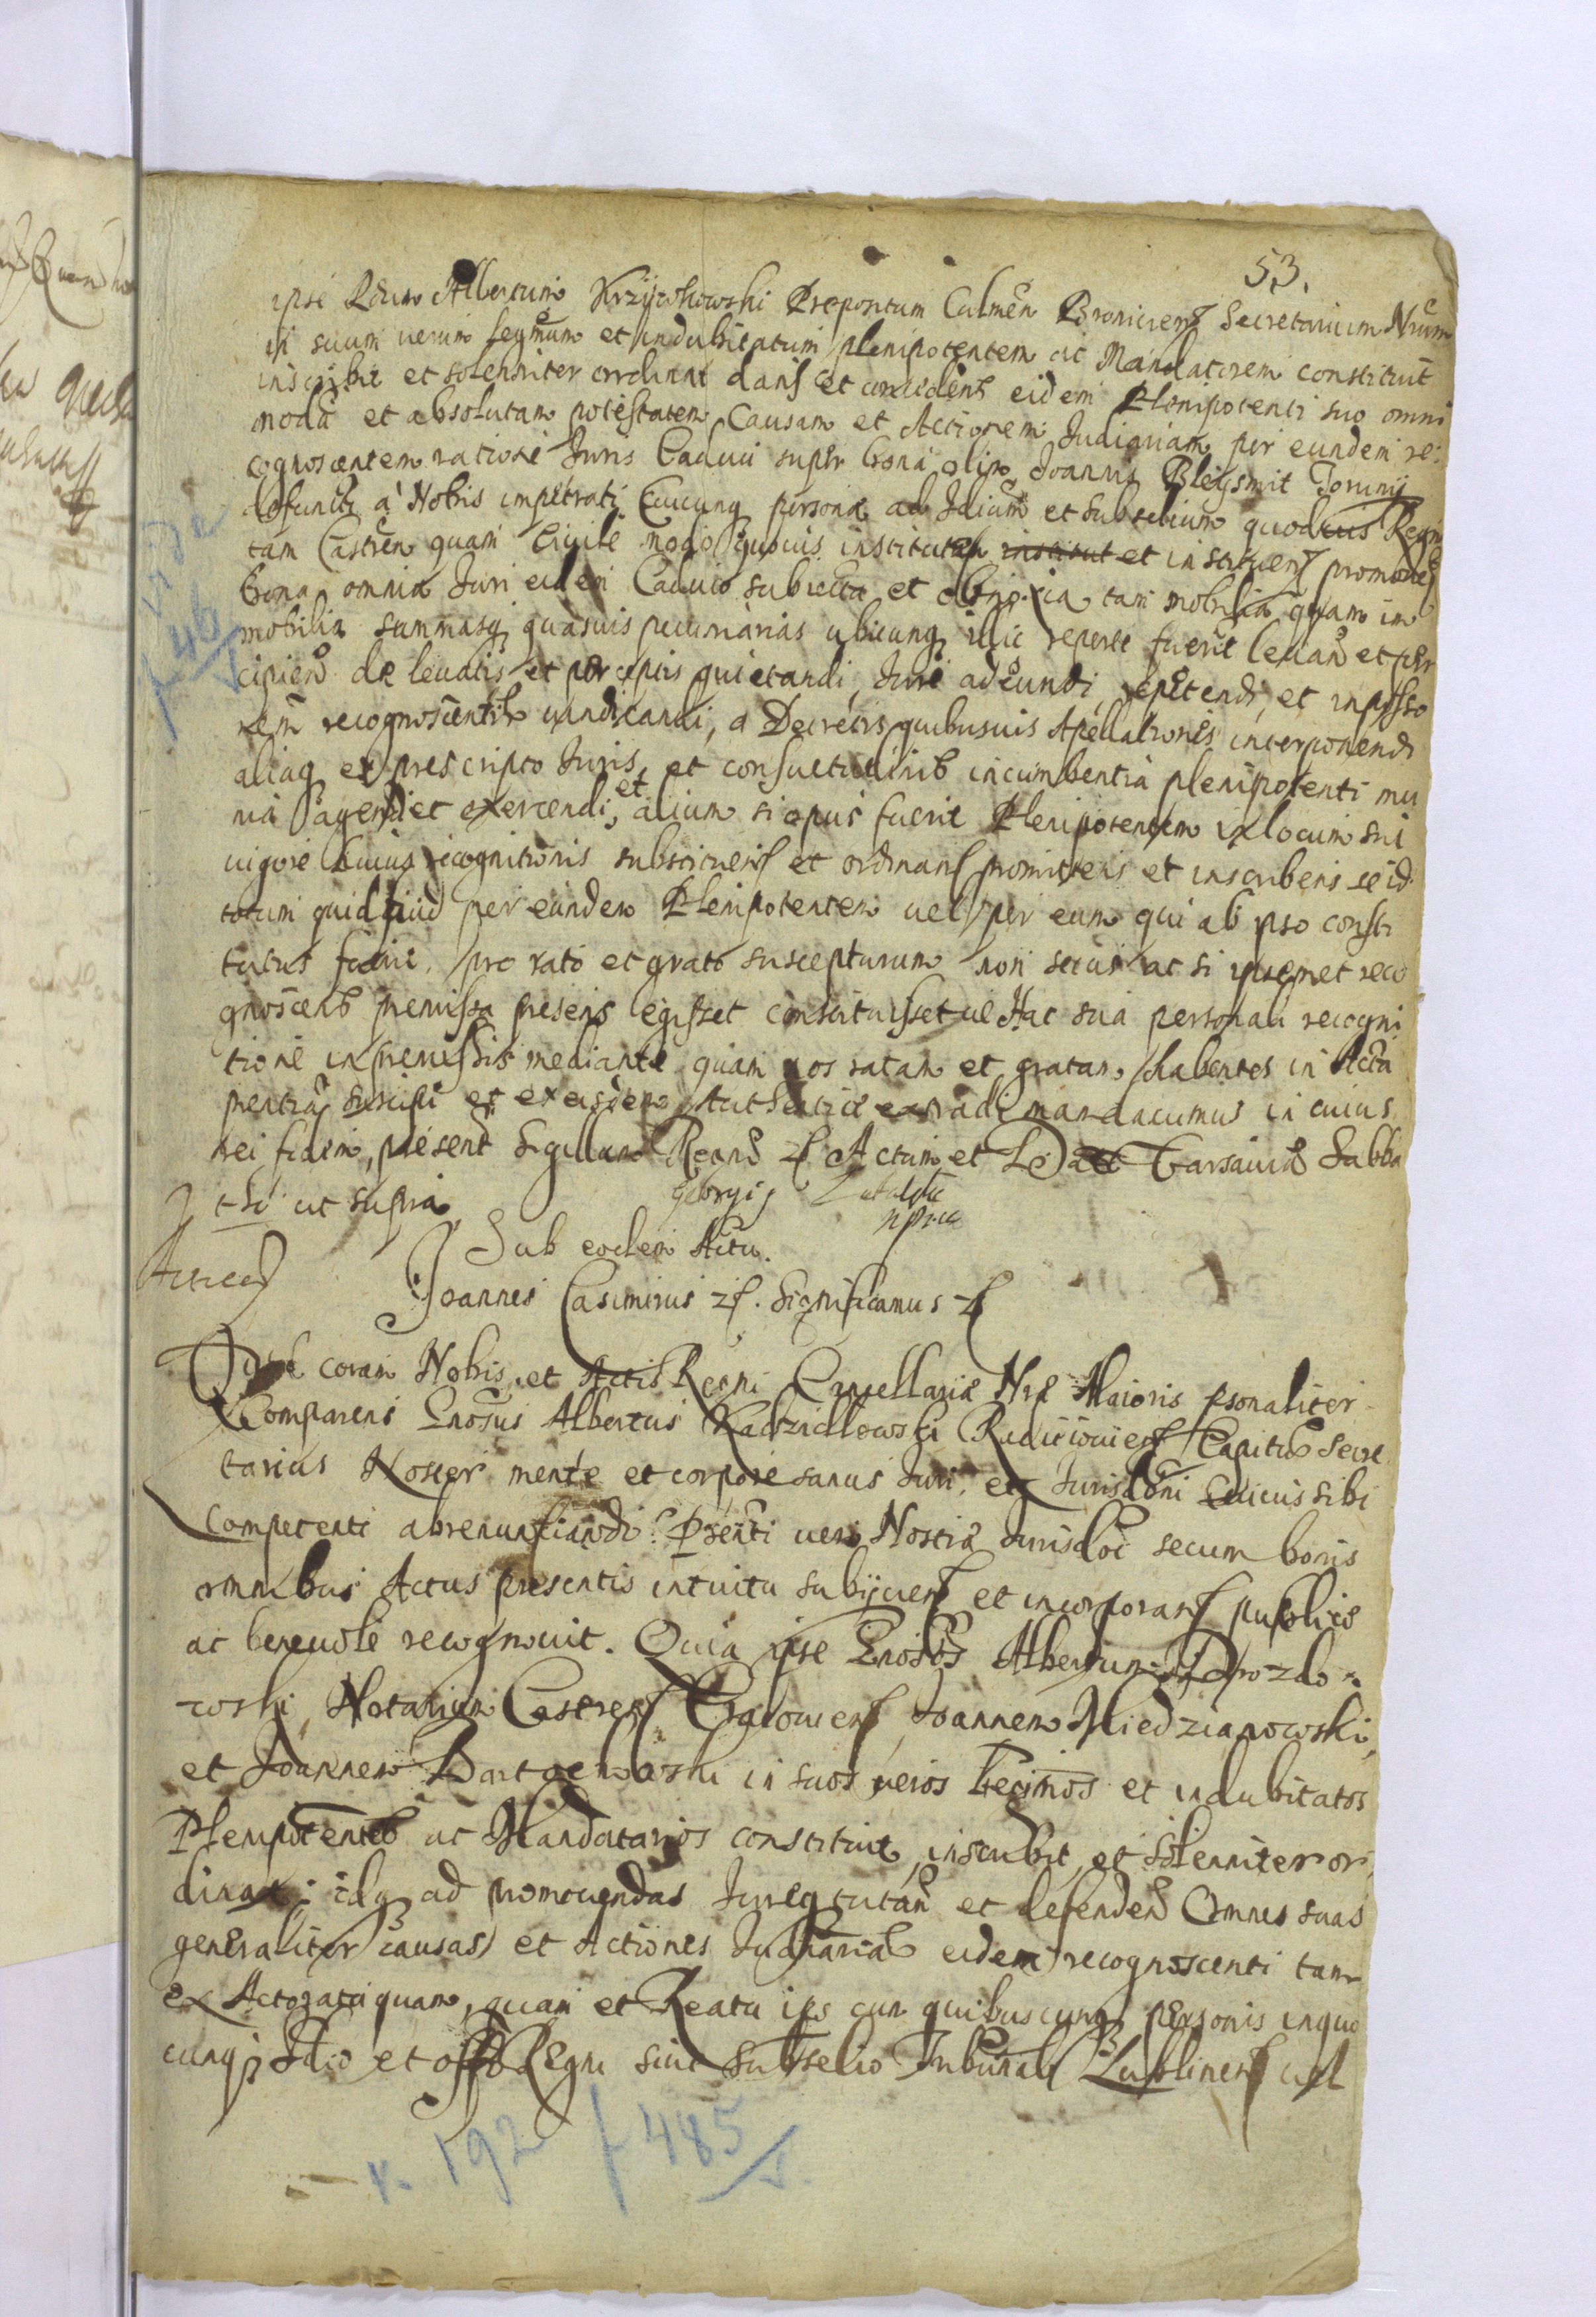 53.
ipse Rdum Albertum Krzÿwkowski Prepositum Culmen Bronicens Secretarium Nrum
in suum verum legmum et indubitatum plenipotentem ac Mandatorem constituit
inscribit et solenniter ordinat dans et concedens eidem Plenipotenti suo omni
modā et absolutam potestatem Causam et Actionem Judiciariam per eundem re:
cognoscentem ratione Juris Caduci super bona olim Joannis Bleijsmit Torunij
defuncti à Nobis impetrati cuicunq personæ ad Idicium et subselium quoduis Regni
tam Castren quam Civile modo quouis institutas institut et instituens promovens
bona omnia Juri eidem Caduco subiecta et obnoxia tam mobilia quam im
mobilia summasq quasuis pecuniarias ubicunq illic reperte fuerit levand et per
cipiend de levatis et perceptis quietandi, Jure adeundi, repetendi, et in posso
rem recognoscentis vindicandi, a Decretis quibusuis Apellationes interponendi
aliaq ex prescripto Juris, et consuetudinib incumbentia plenipotenti mu
nia agendi et exercendi, et alium si opus fuerit Plenipotentem in locum sui
vigore huius recognitionis substituens et ordinans promittens et inscribens se id
totum quidquid per eundem Plenipotentem vel per eum qui ab ipso consti
tutus fuerit, pro rato et grato suscepturum non secus ac si ipsemet reco
gnoscens premissa presens egisset constituissetve Hac sua personali recogni
tione in premissis mediante quam nos ratam et gratam habentes in Acta
pentia suscipi et ex eisdem Authentice extradi mandavimus in cuius
rei fidem, present Sigillum Regni zf Actum et Dat Varsaviæ Sabba
tho ut supra
Sub eodem Actu.
Joannes Casimirus zf. Significamus zf
Quia coram Nobis et Actis Regni Cancellariæ Nræ Maioris psonaliter
Comparens Gnosus Albertus Radzicllowski Capitus Secre
tarius Noster mente et corpore sanus Juri et Jurisdoni cuiuis sibi
competenti abrenunciando: Psenti vero Nostræ Jurisdoi secum bonis
omnibus Actus presentis intuitu subijciens et incorporans publice
ac benevole recognovit. Quia ipse Gnosos Albertum Drozdo =
wski Notarium Castrens Cracoviens, Joannem Miedzianowski,
et Joannem in suos veros legimos et indubitatos
Plenipotentes ac Mandatarios constituit, inscribit, et solenniter or
dinat; idq ad promovendas Jureq tutand et defendend Omnes suas
generaliter causas et Actiones Judiarias eidem recognoscenti tam
ex Actoratu quam, quam et Reatu ips cum quibuscunq personis in quo
cunq Idio et offo Regni sive Subselio Tribunali Lublinens vel
k. 192 f 485